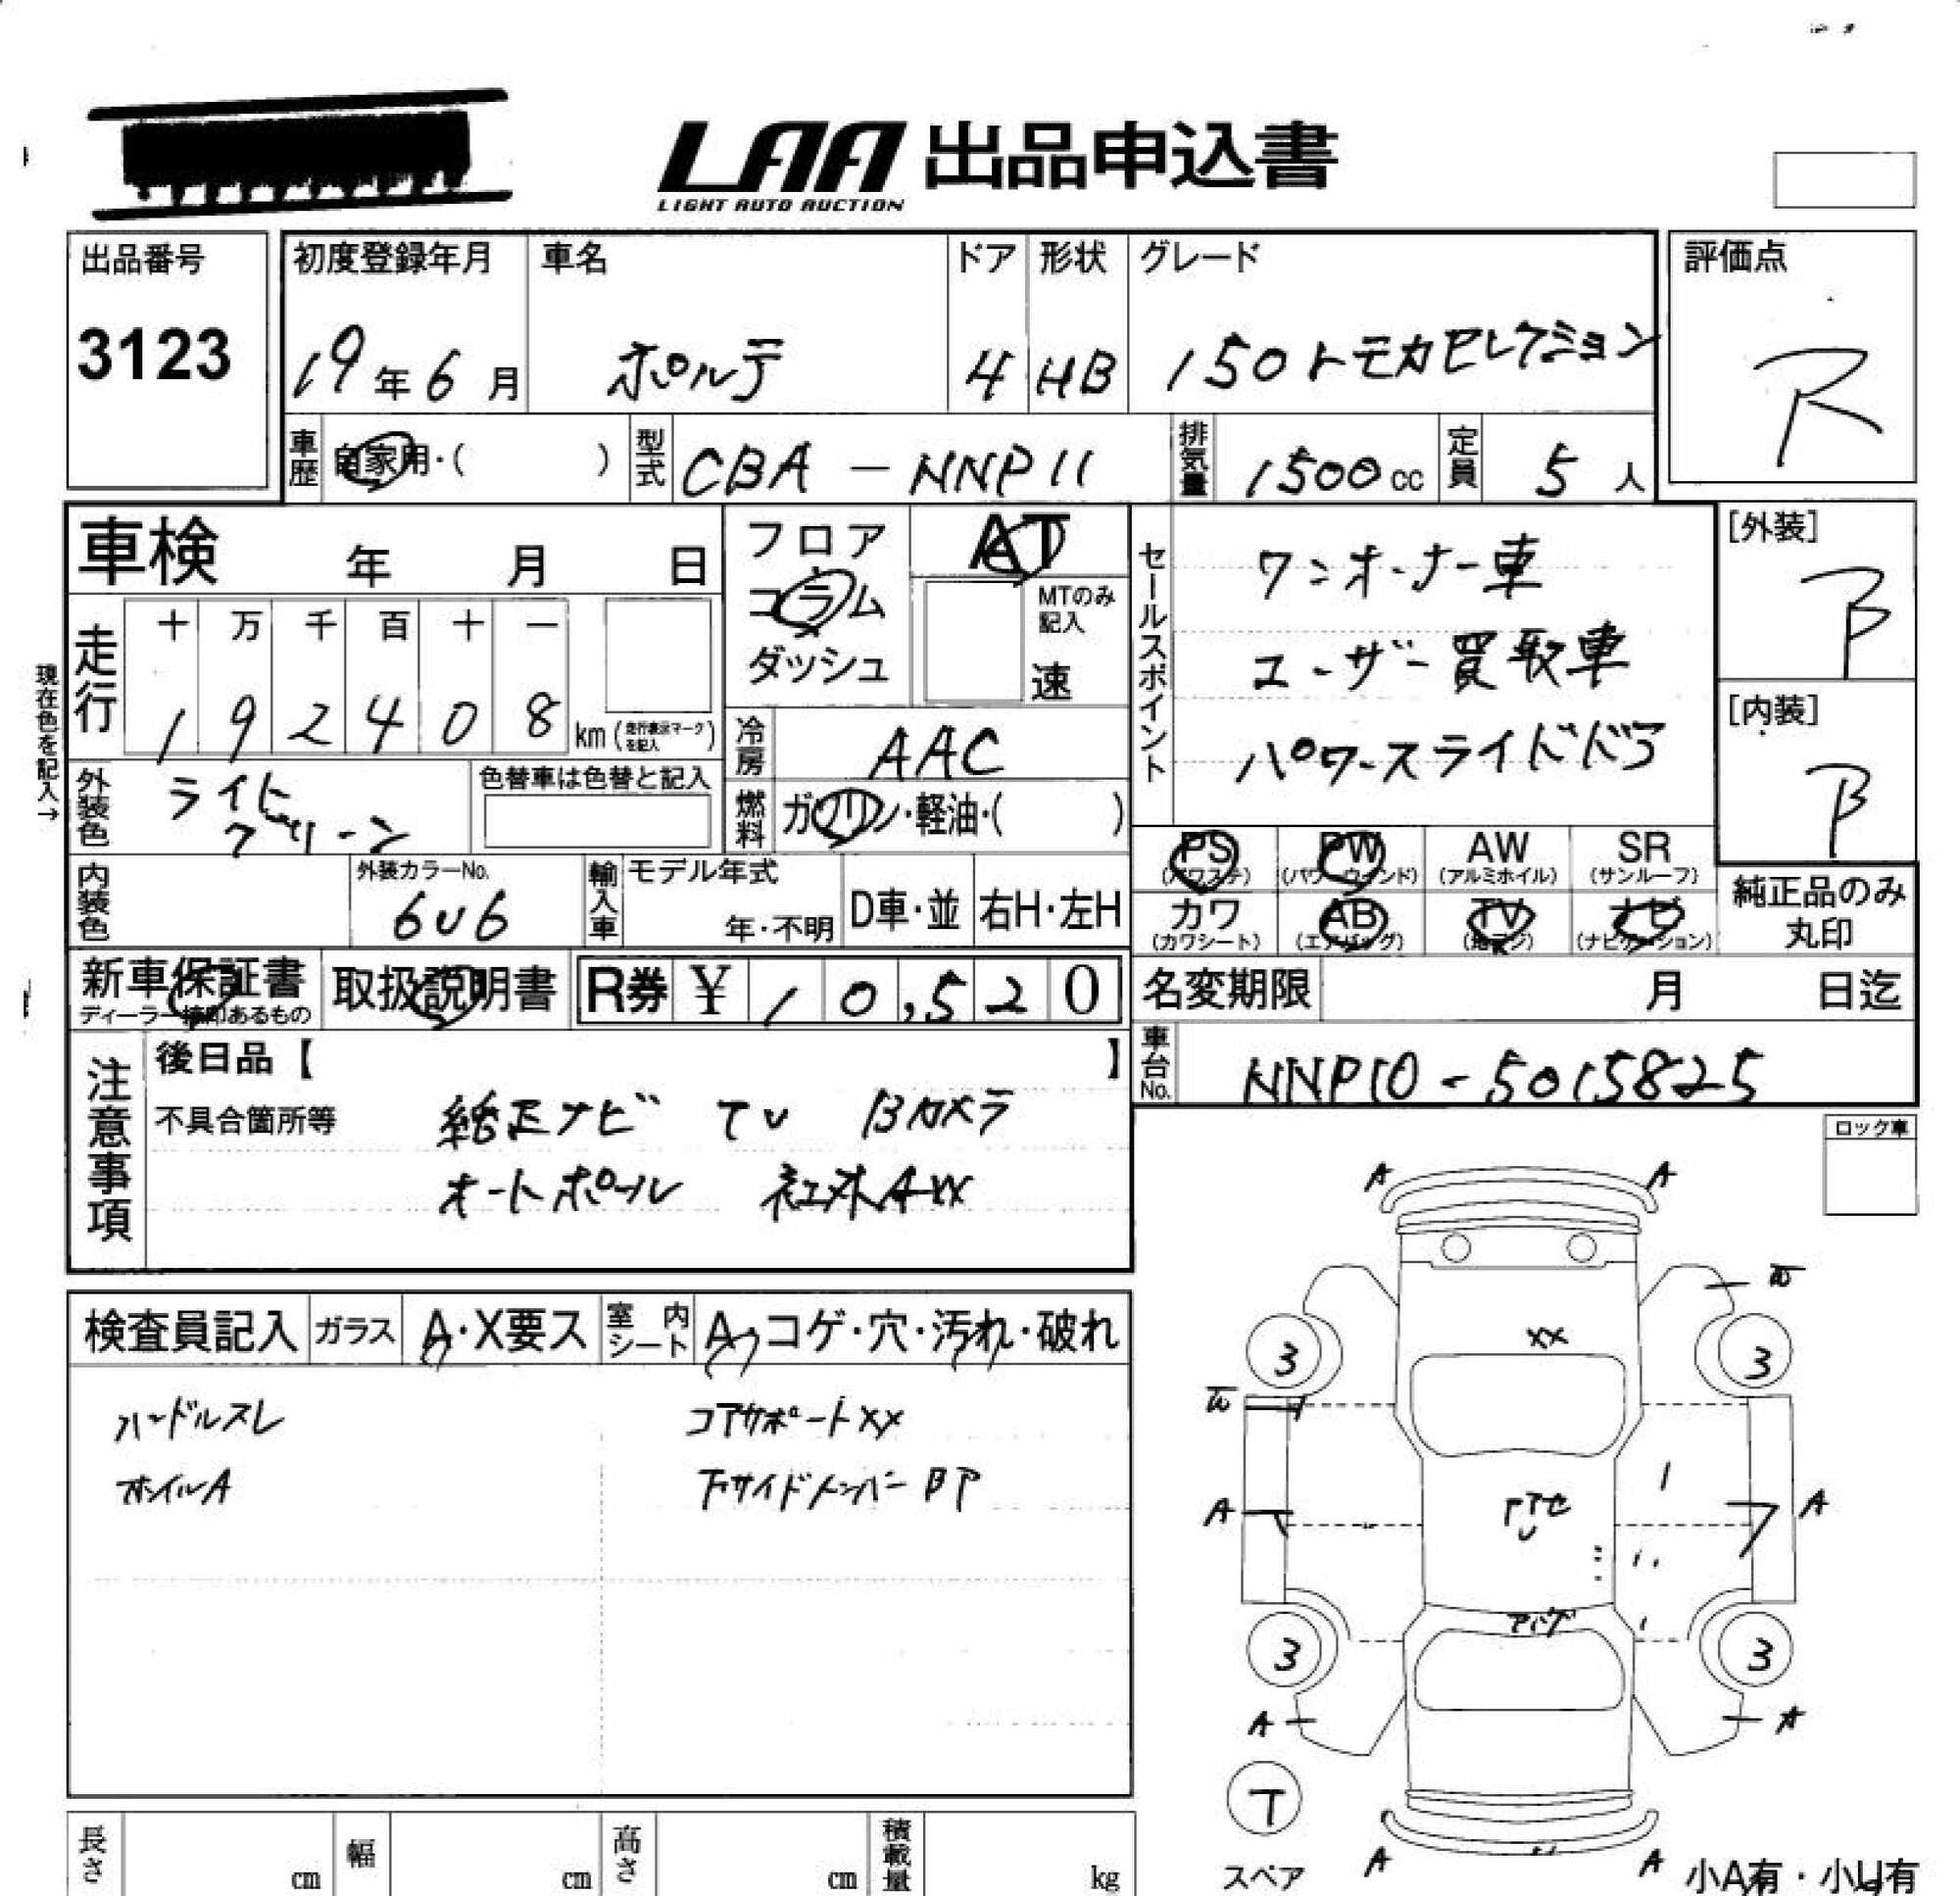 LAA 出品申込書
LIGHT AUTO AUCTION
出品番号
3123
初度登録年月
19年6月
車名
ポルテ
ドア
4
形状
HB
グレード
150トモカセレクション
評価点
R
車歴
自家用・( )
型式
CBA-NNP11
排気量
1500cc
定員
5人
車検 年 月 日
フロア
コラム
ダッシュ
AT
MTのみ
記入
速
セールスポイント
ワンオーナー車
ユーザー買取車
パワースライドドア
[外装]
B
[内装]
B
現在色を記入→
走行
十万千百十一
192408
km(走行表示マークを記入)
冷房
AAC
外装色
ライト
グリーン
色替車は色替と記入
燃料
ガソリン・軽油・( )
PS
(パワステ)
PW
(パワーウインド)
AW
(アルミホイル)
SR
(サンルーフ)
カワ
(カワシート)
AB
(エアバッグ)
TV
(地デジ)
ナビ
(ナビゲーション)
純正品のみ
丸印
内装色
外装カラーNo.
6U6
輸入車
モデル年式
年・不明
D車・並
右H・左H
新車保証書
ディーラー捺印あるもの
取扱説明書
R券 ¥ 10,520
名変期限 月 日迄
車台No.
NNP10-5015825
注意事項
後日品【 】
不具合箇所等
純正ナビ TV Bカメラ
オートポール 社外AW
ロック車
検査員記入
ガラス
A・X要ス
室内シート
A・コゲ・穴・汚れ・破れ
ハンドルスレ
ホイルA
コアサポートXX
下サイドメンバーBP
A A
W
XX
3 3
W
A A
アンダ
3 3
A A
T
スペア
A A
小A有・小U有
長さ cm
幅 cm
高さ cm
積載量 kg